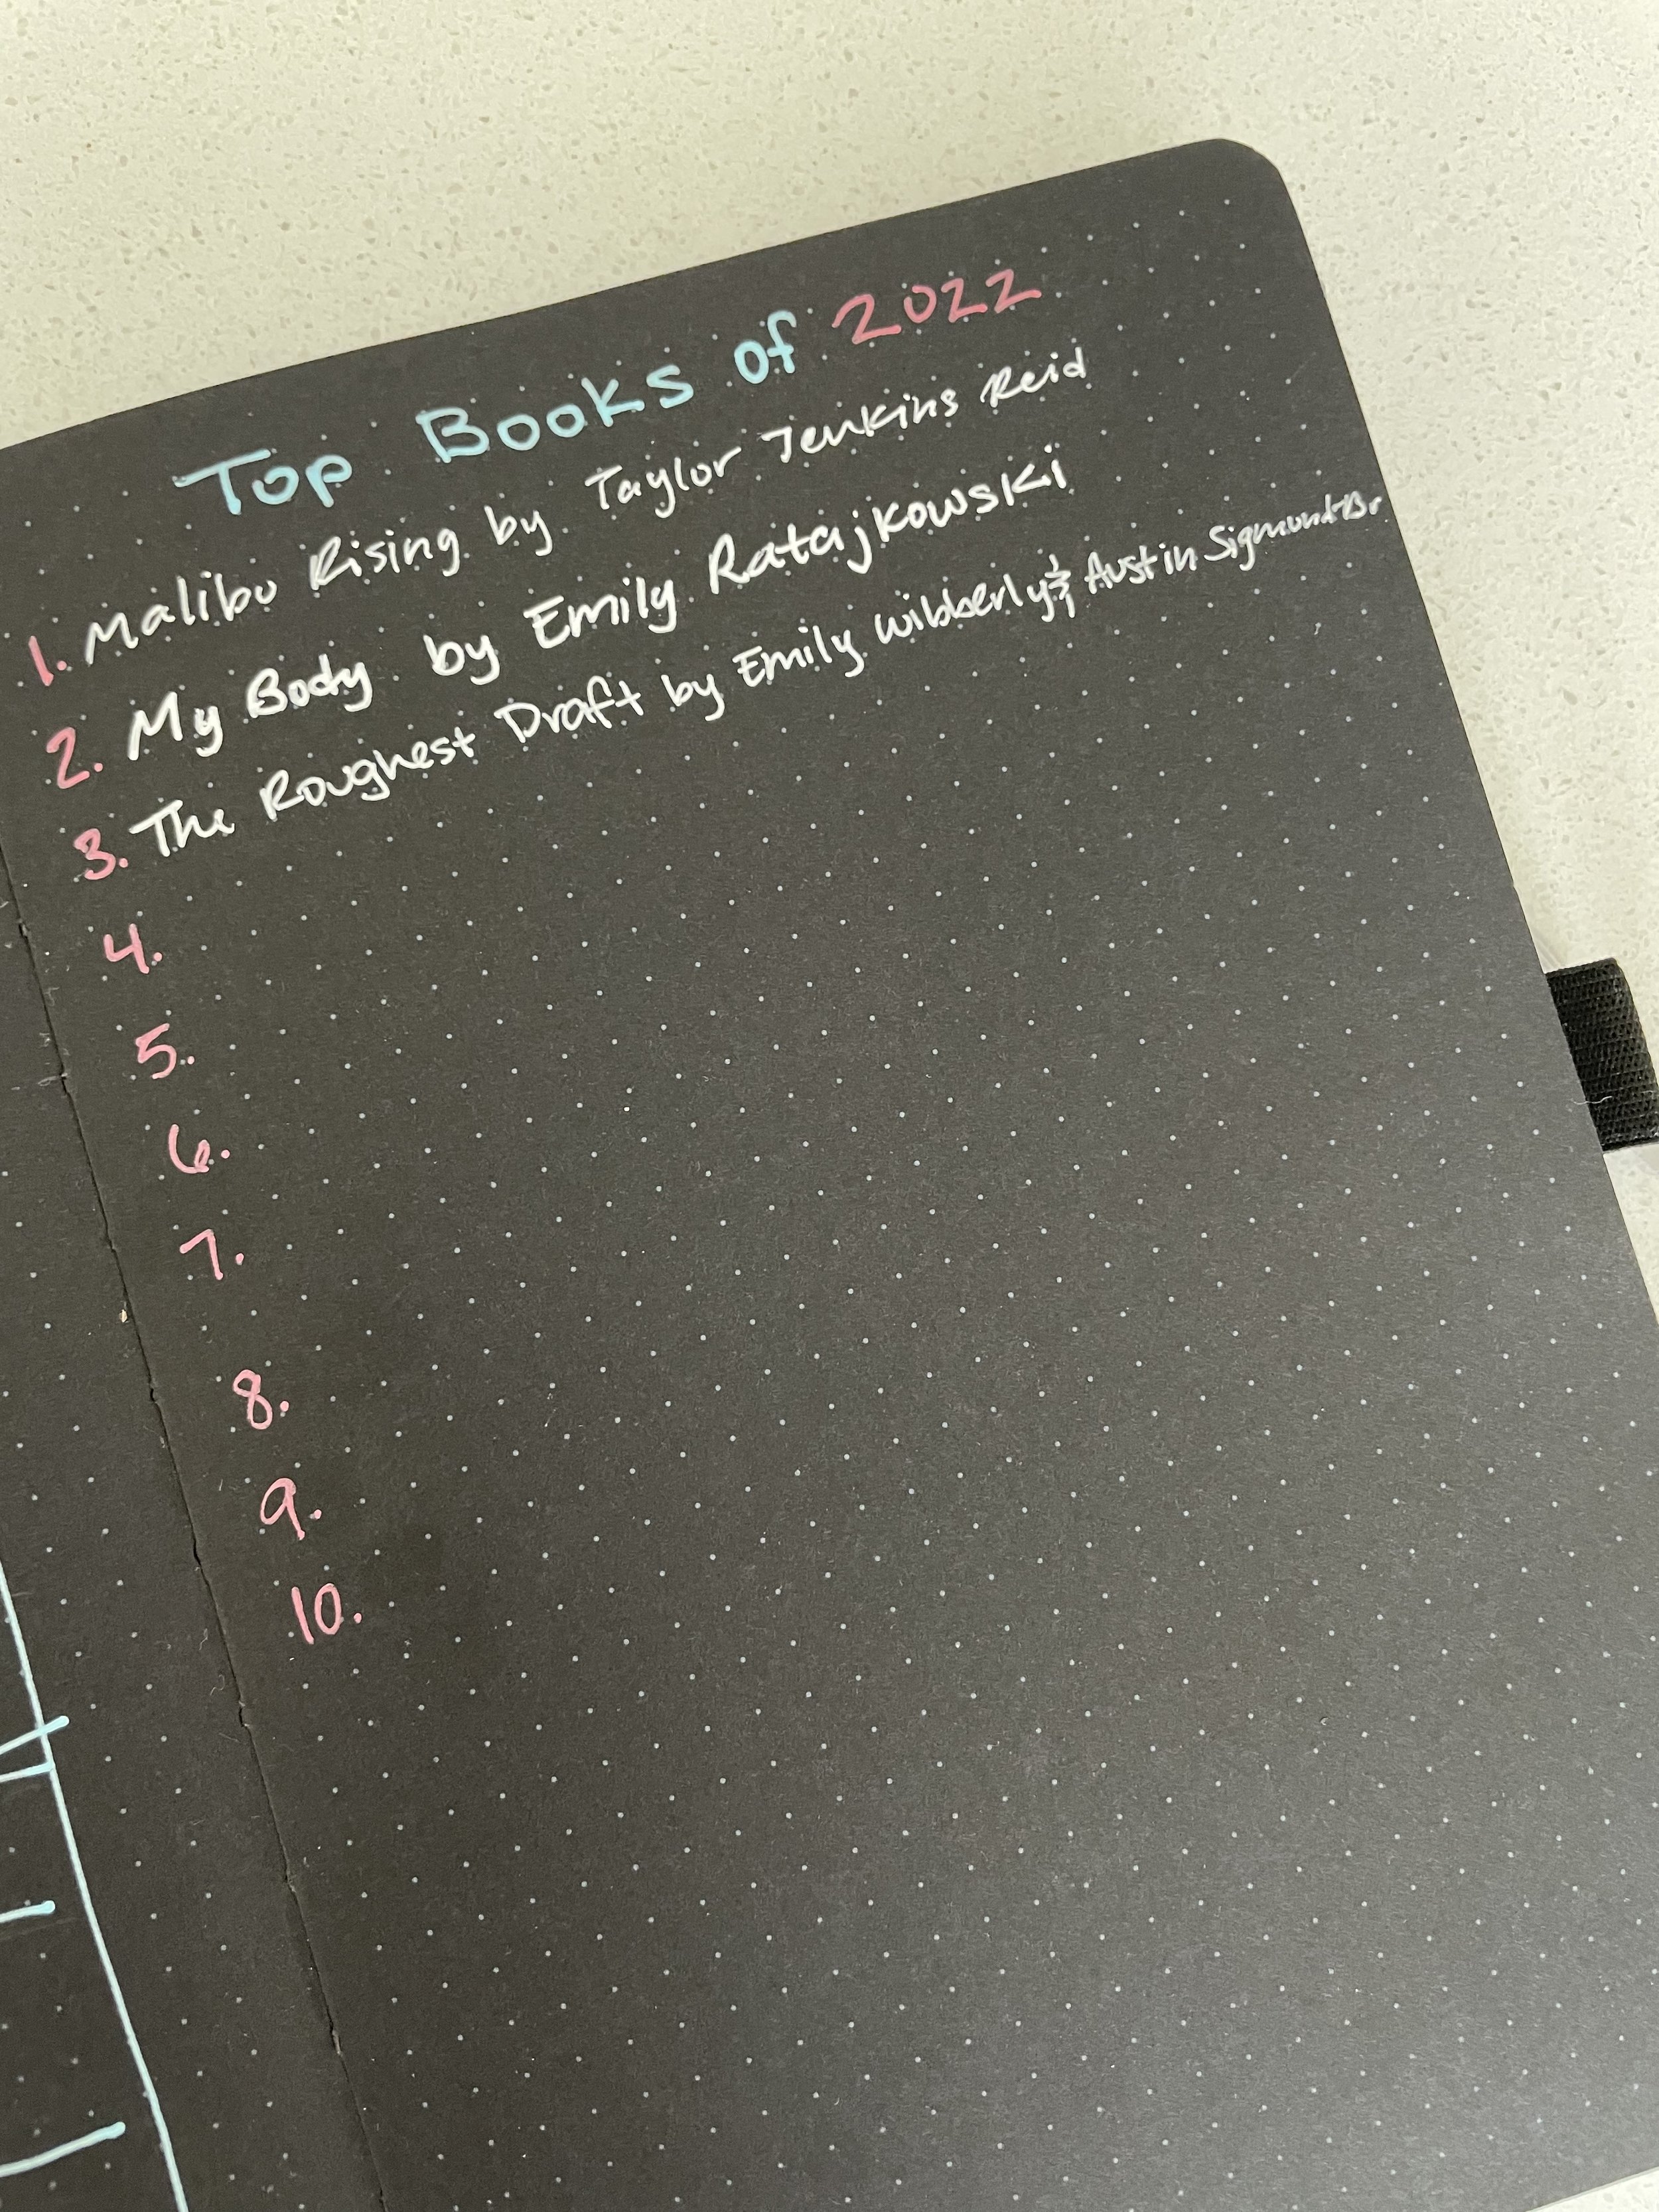 Top Books of 2022
1. Malibu Rising by Taylor Jenkins Reid
2. My Body by Emily Ratajkowski
3. The Roughest Draft by Emily Wibberly & Austin Sigmund-Br.
4.
5.
6.
7.
8.
9.
10.